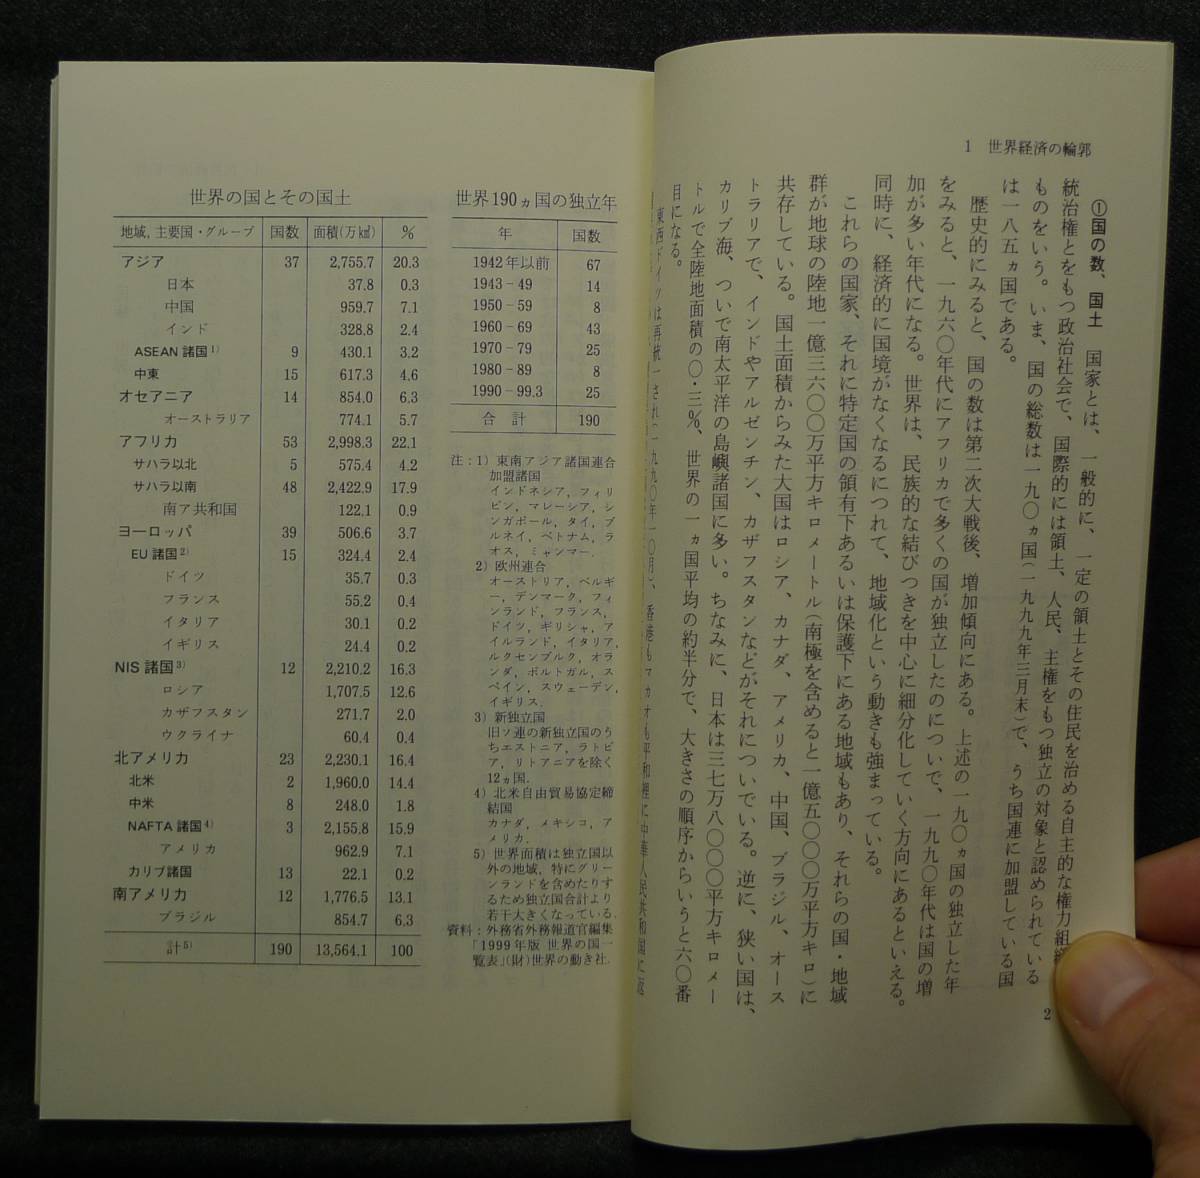 1 世界経済の輪郭
①国の数、国土 国家とは、一般的に、一定の領土とその住民を治める自主的な権力組
統治権とをもつ政治社会で、国際的には領土、人民、主権をもつ独立の対象と認められている
ものをいう。いま、国の総数は一九〇ヵ国(一九九九年三月末)で、うち国連に加盟している国
は一八五ヵ国である。
歴史的にみると、国の数は第二次大戦後、増加傾向にある。上述の一九〇ヵ国の独立した年
をみると、一九六〇年代にアフリカで多くの国が独立したのについで、一九九〇年代は国の増
加が多い年代になる。世界は、民族的な結びつきを中心に細分化していく方向にあるといえる。
同時に、経済的に国境がなくなるにつれて、地域化という動きも強まっている。
これらの国家、それに特定国の領有下あるいは保護下にある地域もあり、それらの国・地域
群が地球の陸地一億三六〇〇万平方キロメートル(南極を含めると一億五〇〇〇万平方キロ)に
共存している。国土面積からみた大国はロシア、カナダ、アメリカ、中国、ブラジル、オース
トラリアで、インドやアルゼンチン、カザフスタンなどがそれについでいる。逆に、狭い国は、
カリブ海、ついで南太平洋の島嶼諸国に多い。ちなみに、日本は三七万八〇〇〇平方キロメー
トルで全陸地面積の〇・三%、世界の一ヵ国平均の約半分で、大きさの順序からいうと六〇番
目になる。
東西ドイツは再統一され(一九九〇年一〇月)、香港もマカオも平和裡に中華人民共和国に返
2
世界190ヵ国の独立年
年 国数
1942年以前 67
1943-49 14
1950-59 8
1960-69 43
1970-79 25
1980-89 8
1990-99.3 25
合計 190
注:1) 東南アジア諸国連合
加盟諸国
インドネシア,フィリ
ピン,マレーシア,シ
ンガポール,タイ,ブ
ルネイ,ベトナム,ラ
オス,ミャンマー.
2) 欧州連合
オーストリア,ベルギ
ー,デンマーク,フィ
ンランド,フランス,
ドイツ,ギリシャ,ア
イルランド,イタリア,
ルクセンブルク,オラ
ンダ,ポルトガル,ス
ペイン,スウェーデン,
イギリス.
3) 新独立国
旧ソ連の新独立国のう
ちエストニア,ラトビ
ア,リトアニアを除く
12ヵ国.
4) 北米自由貿易協定締
結国
カナダ,メキシコ,ア
メリカ.
5) 世界面積は独立国以
外の地域,特にグリー
ンランドを含めたりす
るため独立国合計より
若干大きくなっている.
資料:外務省外務報道官編集
「1999年版 世界の国一
覧表」(財)世界の動き社.
世界の国とその国土
地域,主要国・グループ 国数 面積(万㎢) %
アジア 37 2,755.7 20.3
日本 37.8 0.3
中国 959.7 7.1
インド 328.8 2.4
ASEAN諸国1) 9 430.1 3.2
中東 15 617.3 4.6
オセアニア 14 854.0 6.3
オーストラリア 774.1 5.7
アフリカ 53 2,998.3 22.1
サハラ以北 5 575.4 4.2
サハラ以南 48 2,422.9 17.9
南ア共和国 122.1 0.9
ヨーロッパ 39 506.6 3.7
EU諸国2) 15 324.4 2.4
ドイツ 35.7 0.3
フランス 55.2 0.4
イタリア 30.1 0.2
イギリス 24.4 0.2
NIS諸国3) 12 2,210.2 16.3
ロシア 1,707.5 12.6
カザフスタン 271.7 2.0
ウクライナ 60.4 0.4
北アメリカ 23 2,230.1 16.4
北米 2 1,960.0 14.4
中米 8 248.0 1.8
NAFTA諸国4) 3 2,155.8 15.9
アメリカ 962.9 7.1
カリブ諸国 13 22.1 0.2
南アメリカ 12 1,776.5 13.1
ブラジル 854.7 6.3
計5) 190 13,564.1 100